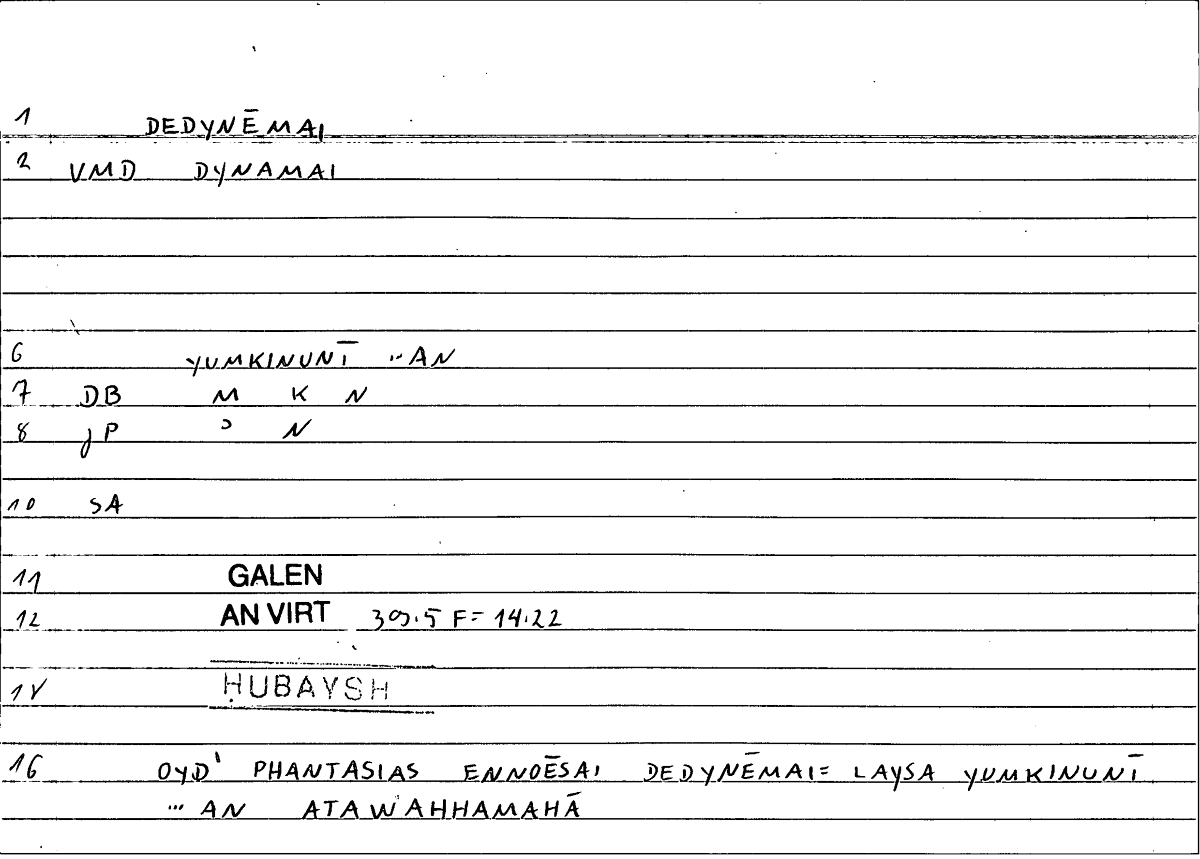 1 DEDYNĒMAI
2 VMD DYNAMAI
6 YUMKINUNĪ ··AN
7 DB M K N
8 jP ᵓ N
10 SA
11 GALEN
12 AN VIRT 309.5 F= 14.22
14 ḤUBAYSH
16 OYD' PHANTASIAS ENNOĒSAI DEDYNĒMAI= LAYSA YUMKINUNĪ
··· AN ATAWAHHAMAHĀ